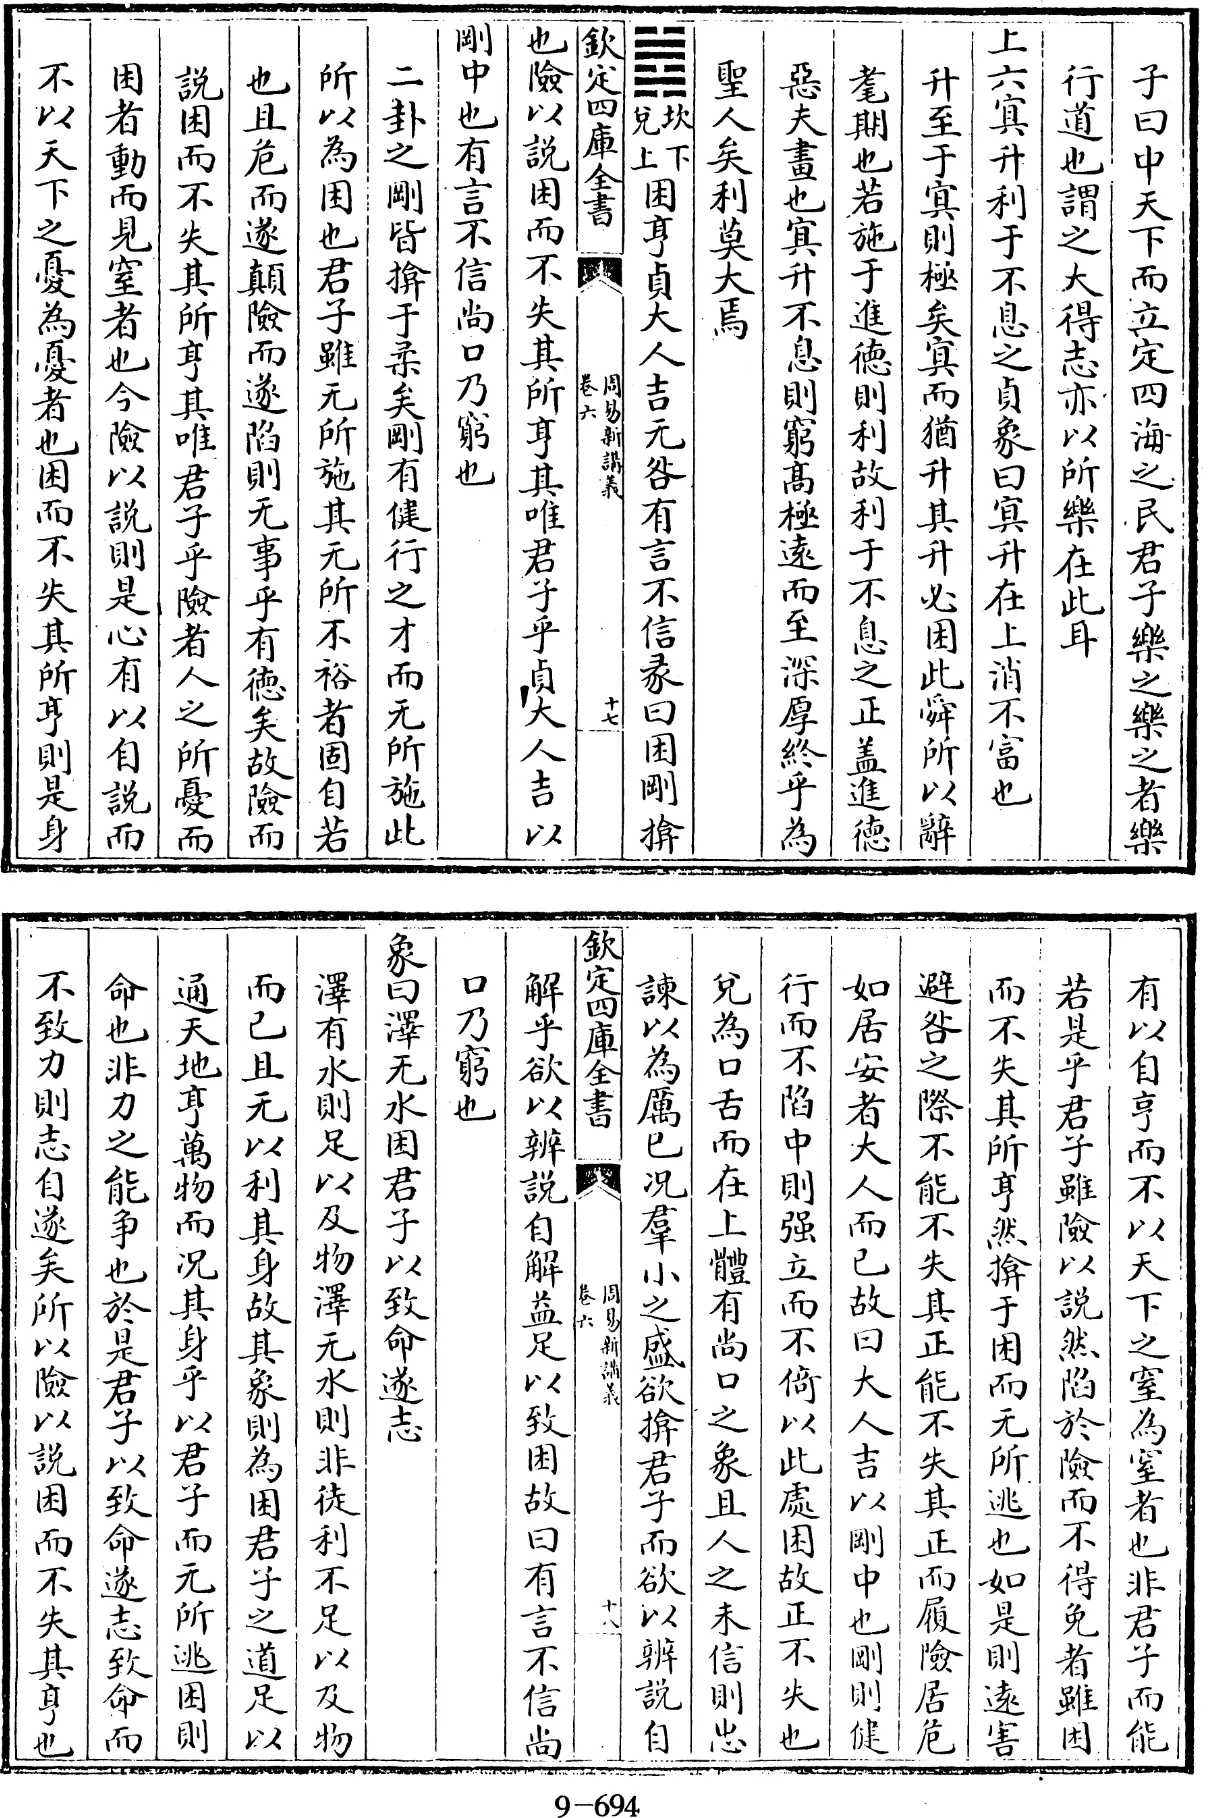 子曰中天下而立定四海之民君子樂之樂之者樂
行道也謂之大得志亦以所樂在此耳
上六冥升利于不息之貞象曰冥升在上消不富也
升至于冥則極矣冥而猶升其升必困此舜所以辭
耄期也若施于進德則利故利于不息之正盖進德
惡夫畫也冥升不息則窮高極遠而至深厚終乎為
聖人矣利莫大焉
坎下
兌上
困亨貞大人吉无咎有言不信彖曰困剛揜
欽定四庫全書
周易新講義
卷六
十七
也險以說困而不失其所亨其唯君子乎貞大人吉以
剛中也有言不信尚口乃窮也
二卦之剛皆揜于柔矣剛有健行之才而无所施此
所以為困也君子雖无所施其无所不裕者固自若
也且危而遂顛險而遂陷則无事乎有德矣故險而
說困而不失其所亨其唯君子乎險者人之所憂而
困者動而見窒者也今險以說則是心有以自說而
不以天下之憂為憂者也困而不失其所亨則是身
有以自亨而不以天下之窒為窒者也非君子而能
若是乎君子雖險以說然陷於險而不得免者雖困
而不失其所亨然揜于困而无所逃也如是則遠害
避咎之際不能不失其正能不失其正而履險居危
如居安者大人而已故曰大人吉以剛中也剛則健
行而不陷中則强立而不倚以此處困故正不失也
兌為口舌而在上體有尚口之象且人之未信則忠
諫以為厲已况羣小之盛欲揜君子而欲以辨說自
欽定四庫全書
周易新講義
卷六
十八
解乎欲以辨說自解益足以致困故曰有言不信尚
口乃窮也
象曰澤无水困君子以致命遂志
澤有水則足以及物澤无水則非徒利不足以及物
而已且无以利其身故其象則為困君子之道足以
通天地亨萬物而况其身乎以君子而无所逃困則
命也非力之能争也於是君子以致命遂志致命而
不致力則志自遂矣所以險以說困而不失其亨也
9-694